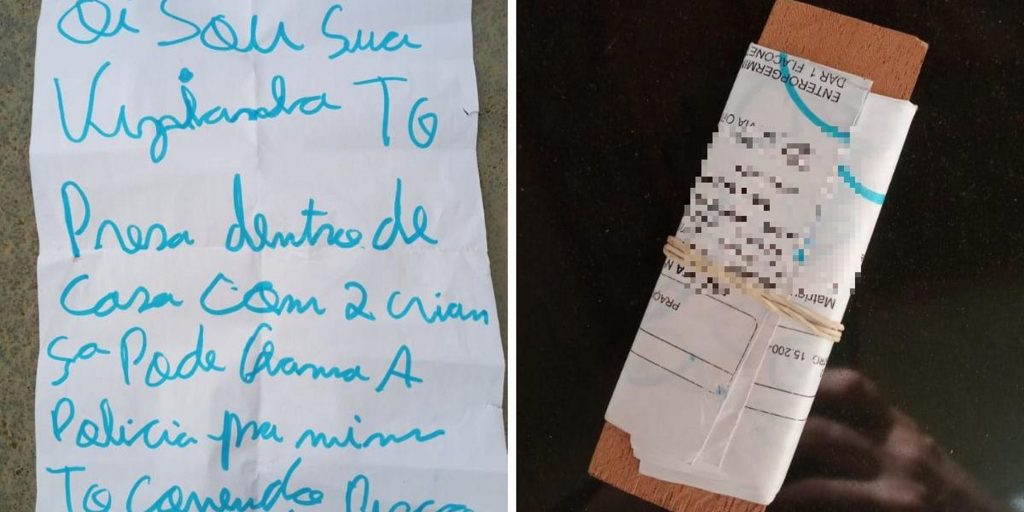 Oi Sou Sua
Vizinha TO
Presa dentro de
Casa Com 2 crian
ça Pode Chama A
Policia pra mim
To Correndo Risco
ENTEROGERMI
DAR 1 FLACONE
VIA O
Matri
PRAÇ
RG 15.200-